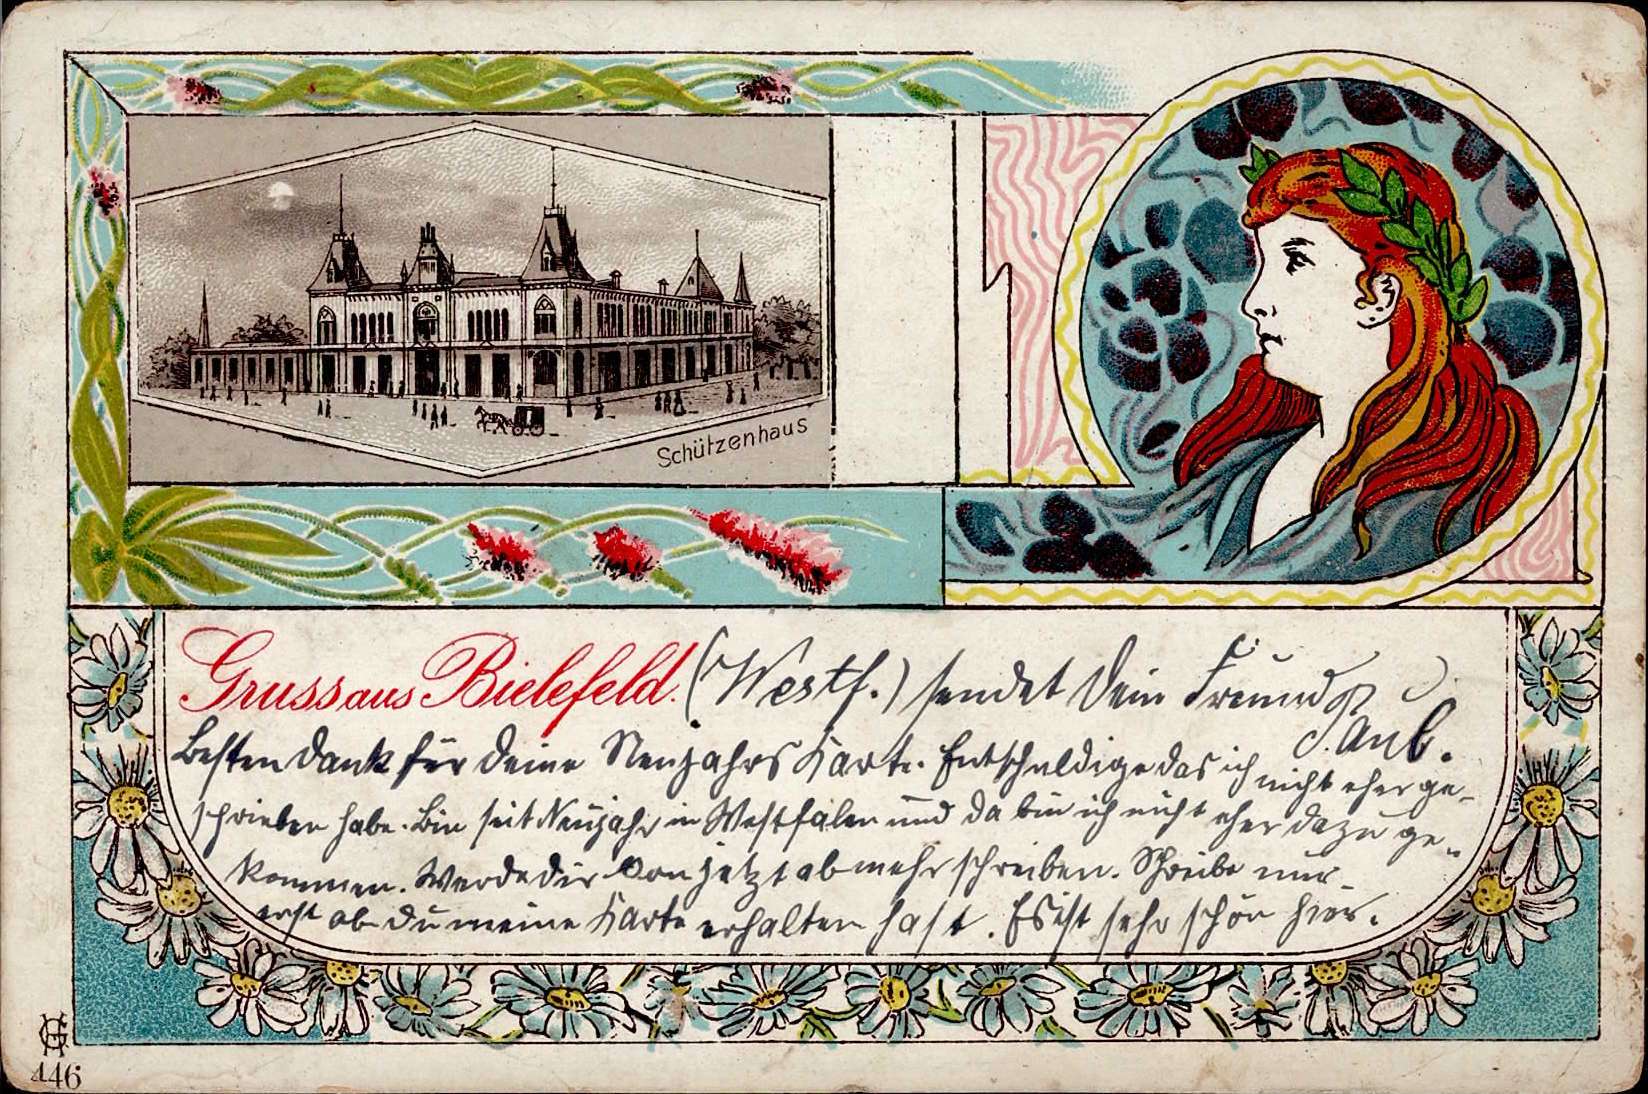 Schützenhaus
Gruss aus Bielefeld. (Westf.) sendet Dein Freund
Besten Dank für Deine Neujahrs Karte. Entschuldige das ich nicht eher ge-
schrieben habe. Bin seit Neujahr in Westfalen und da bin ich nicht eher dazu ge-
kommen. Werde dir von jetzt ab mehr schreiben. Schreibe nur
erst ob du meine Karte erhalten hast. Es ist sehr schön hier.
446